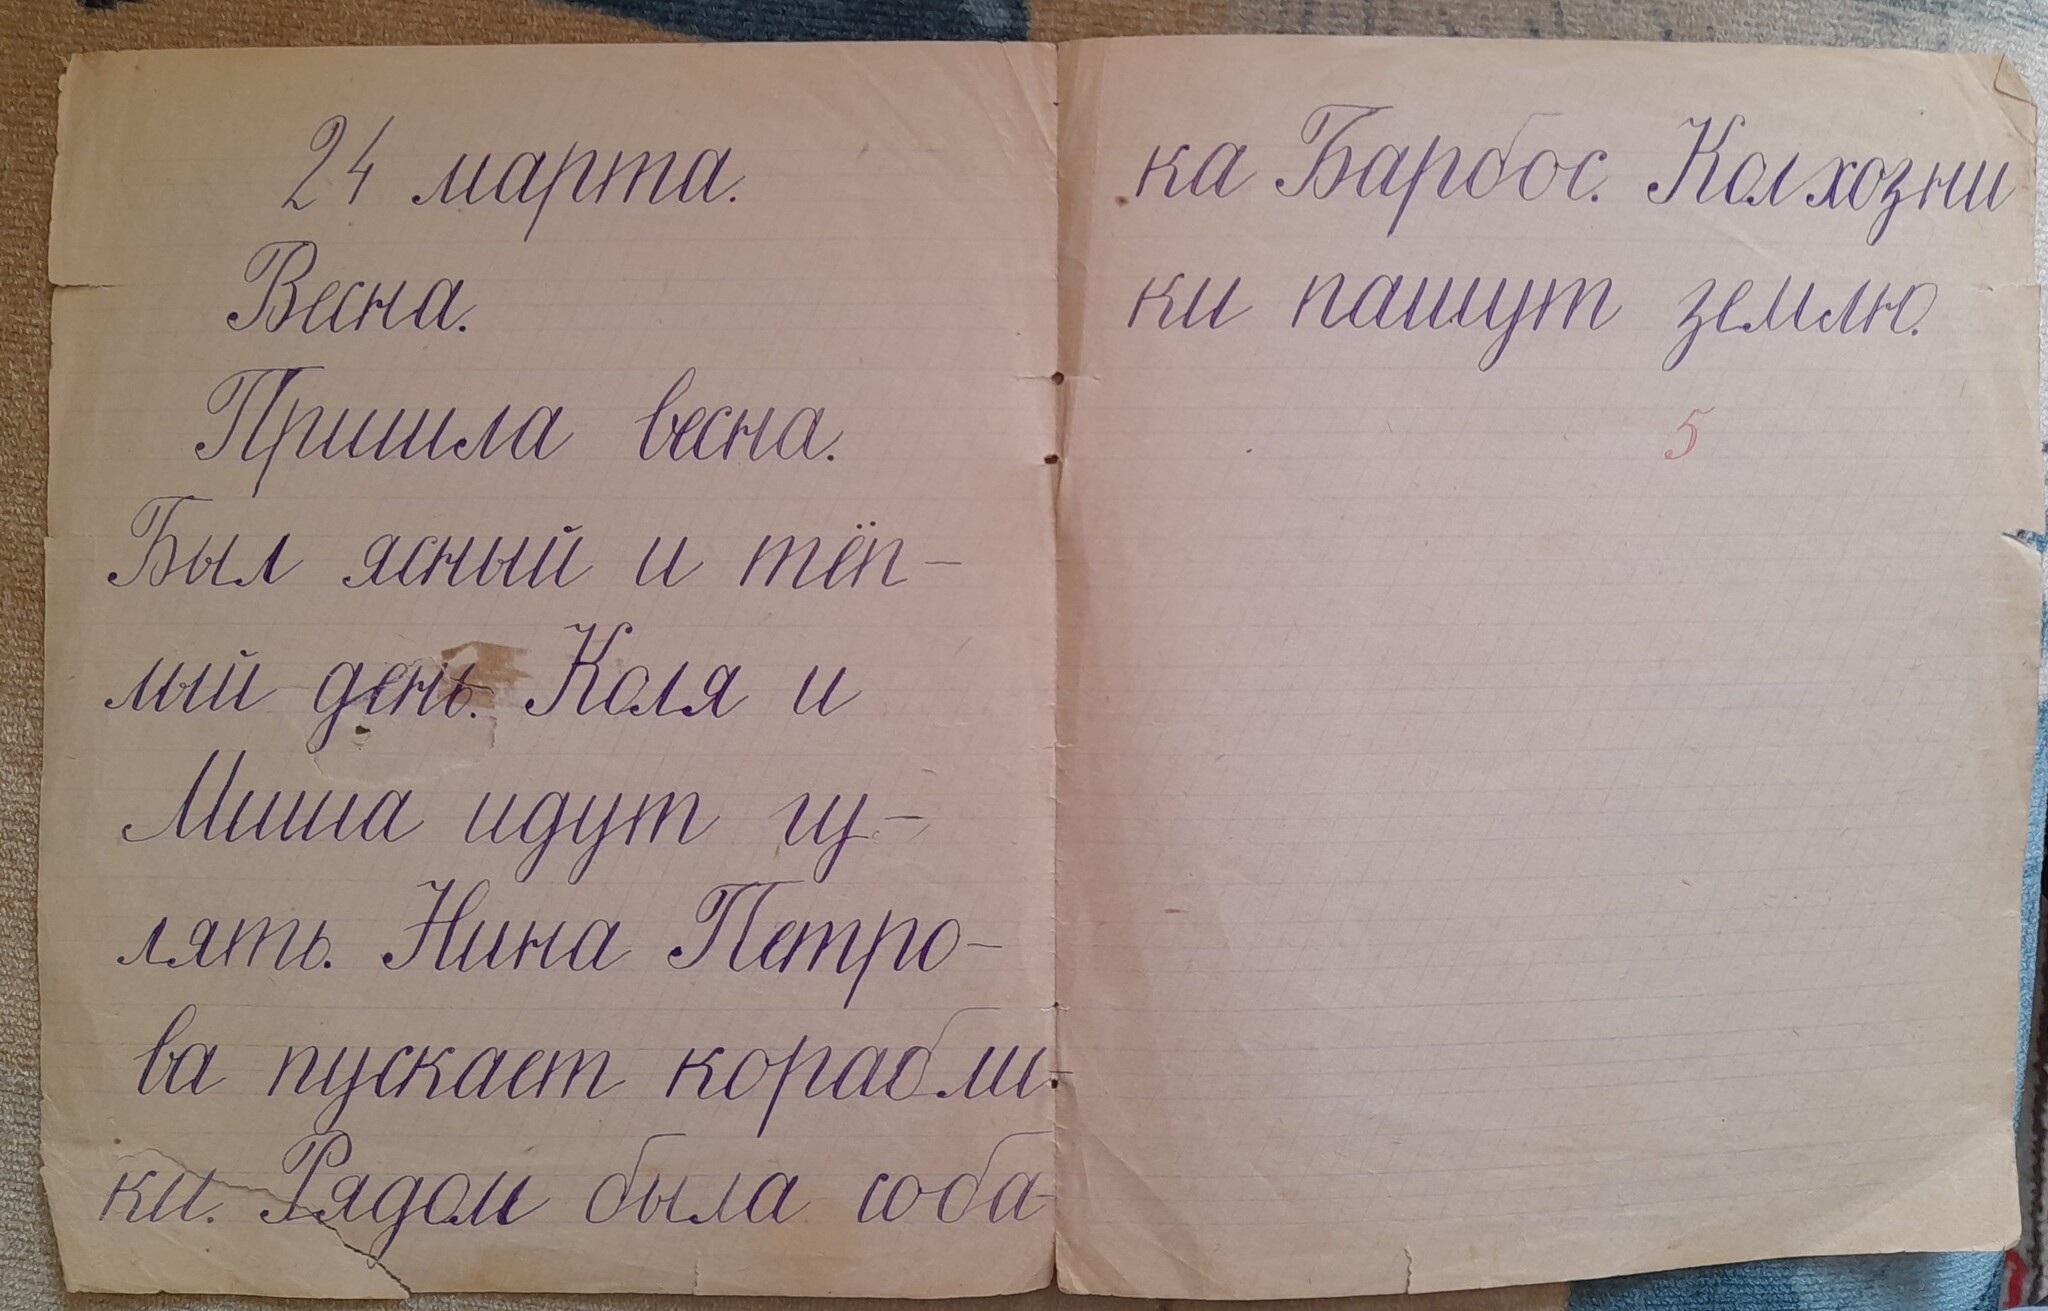 24 марта.
Весна.
Пришла весна.
Был ясный и тёп-
лый день. Коля и
Миша идут гу-
лять. Нина Петро-
ва пускает корабли-
ки. Рядом была соба-
ка Барбос. Колхозни
ки пашут землю.
5